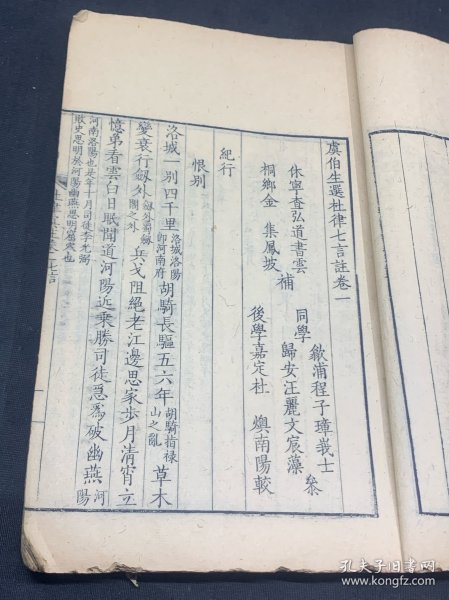 虞伯生選杜律七言註卷一
歙浦程子璋峩士
同學
歸安汪麗文宸藻
叅
休寧查弘道書雲
補
桐鄉金集鳳坡
後學嘉定杜燠南陽較
紀行
恨別
洛城一別四千里洛城洛陽即河南府胡騎長驅五六年胡騎指祿山之亂草木
變衰行劔外劔外蜀劔閣之外兵戈阻絕老江邊思家步月清宵立
憶弟看雲白日眠聞道河陽近乘勝司徒急爲破幽燕河陽
河南洛陽也是年十月司徒李光弼敗史思明於河陽幽燕思明窟穴也
孔夫子旧书网
www.kongfz.com